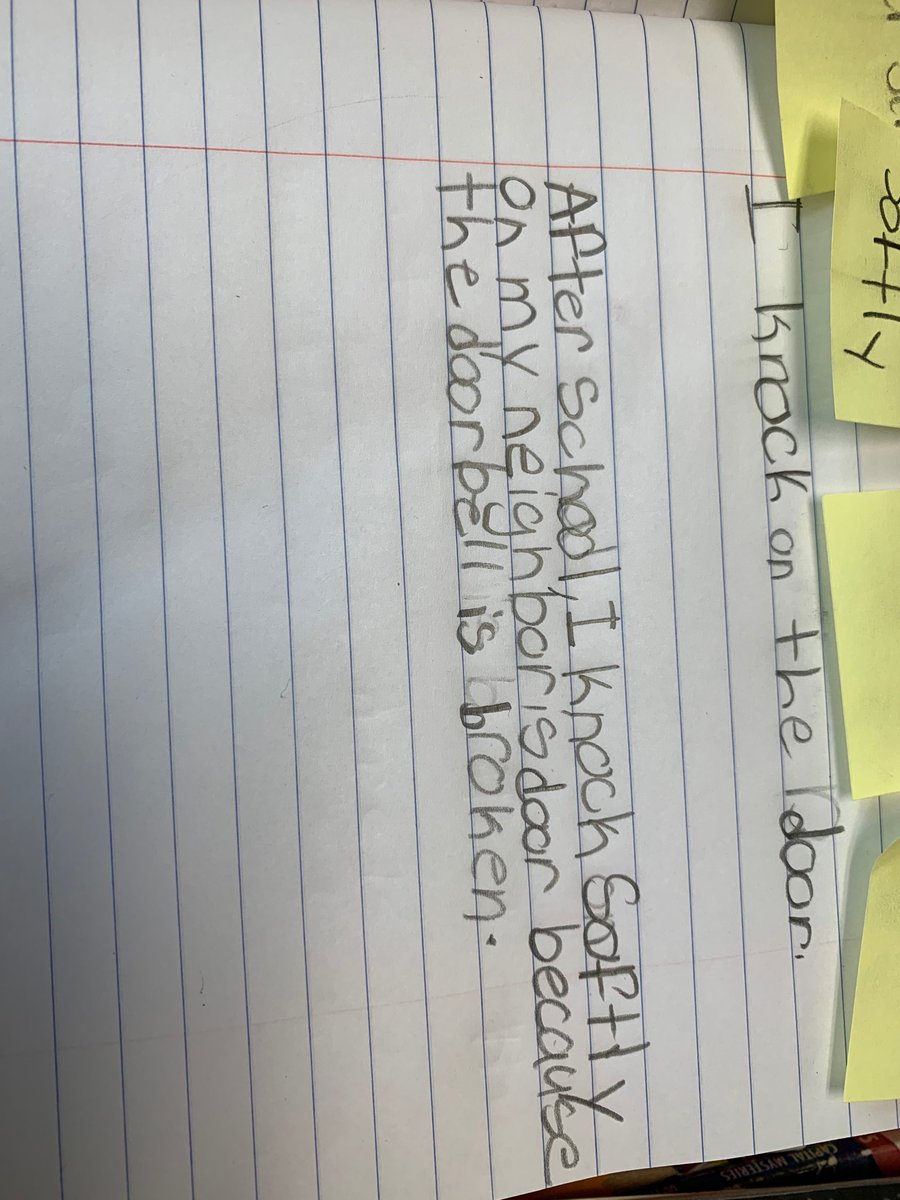 softly
I knock on the door.
After school, I knock softly
on my neighbor's door because
the doorbell is broken.
CAPITAL MYSTERIES